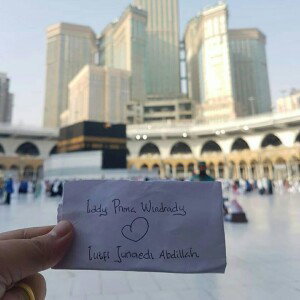 Lady Prima Windrady
Lutfi Junaedi Abdillah